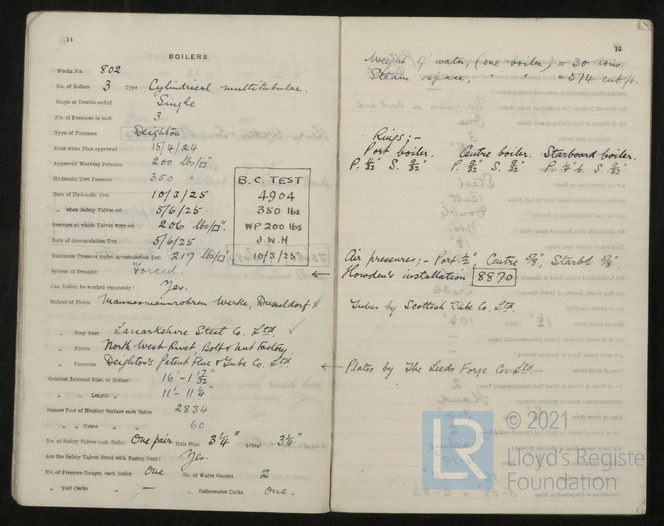 14
BOILERS.
Works No. 802
No. of Boilers 3 Type Cylindrical multitubular.
Single or Double-ended Single
No. of Furnaces in each 3
Type of Furnaces Deighton
Date when Plan approved 15/4/24
Approved Working Pressure 200 lbs/□"
Hydraulic Test Pressure 350 "
Date of Hydraulic Test 10/3/25
" when Safety Valves set 5/6/25
Pressure at which Valves were set 206 lbs/□".
Date of Accumulation Test 5/6/25
Maximum Pressure under Accumulation Test 217 lbs/□"
System of Draught Forced.
Can Boilers be worked separately? Yes.
Makers of Plates Mannesmannrohren Werke, Dusseldorf
" Stay Bars Lanarkshire Steel Co. Ltd
" Rivets North West Rivet, Bolt & Nut Factory.
" Furnaces Deighton's Patent Flue & Tube Co. Ltd
Greatest Internal Diam. of Boilers 16'-1 7/32"
" " Length " 11'-11 1/4"
Square Feet of Heating Surface each Boiler 2834
" " Grate " " 60
No. of Safety Valves each Boiler One pair Rule Diam. 3 1/4" Actual 3 1/4"
Are the Safety Valves fitted with Easing Gear? Yes.
No. of Pressure Gauges, each Boiler One No. of Water Gauges 2
" Test Cocks — " Salinometer Cocks One.
B.C. TEST
4904
350 lbs
WP 200 lbs
J.W.H
10/3/25
15
Weight of water, (one boiler) = 30 tons.
Steam space, " " = 574 cub ft.
Rings;-
Port boiler. Centre boiler. Starboard boiler.
Air pressures;- Port 1/2", Centre 5/8", Starbd 5/8"
Howden's installation 8870
Tubes by Scottish Tube Co. Ltd.
Plates by The Leeds Forge Co. Ltd
© 2021
LR
Lloyd's Register
Foundation